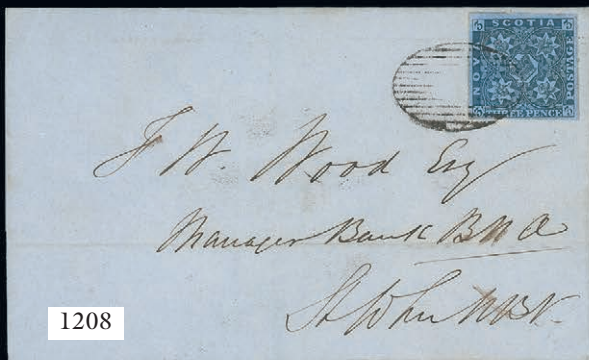 SCOTIA
NOVA
POSTAGE
THREE PENCE
J W. Wood Esq
Manager Bank B N A
St John N.B.
1208